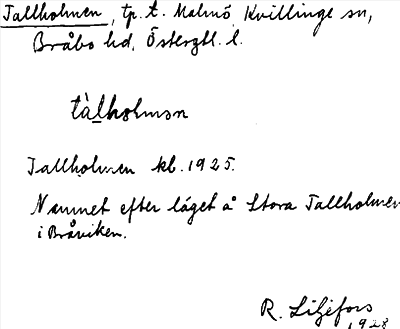 Tallholmen, tp. t. Malmö, Kvillinge sn,
Bråbo hd, Östergtl. l.
tàlhɷlmən
Tallholmen kb. 1925.
Namnet efter läget å Stora Tallholmen
i Bråviken.
R. Liljefors
1928